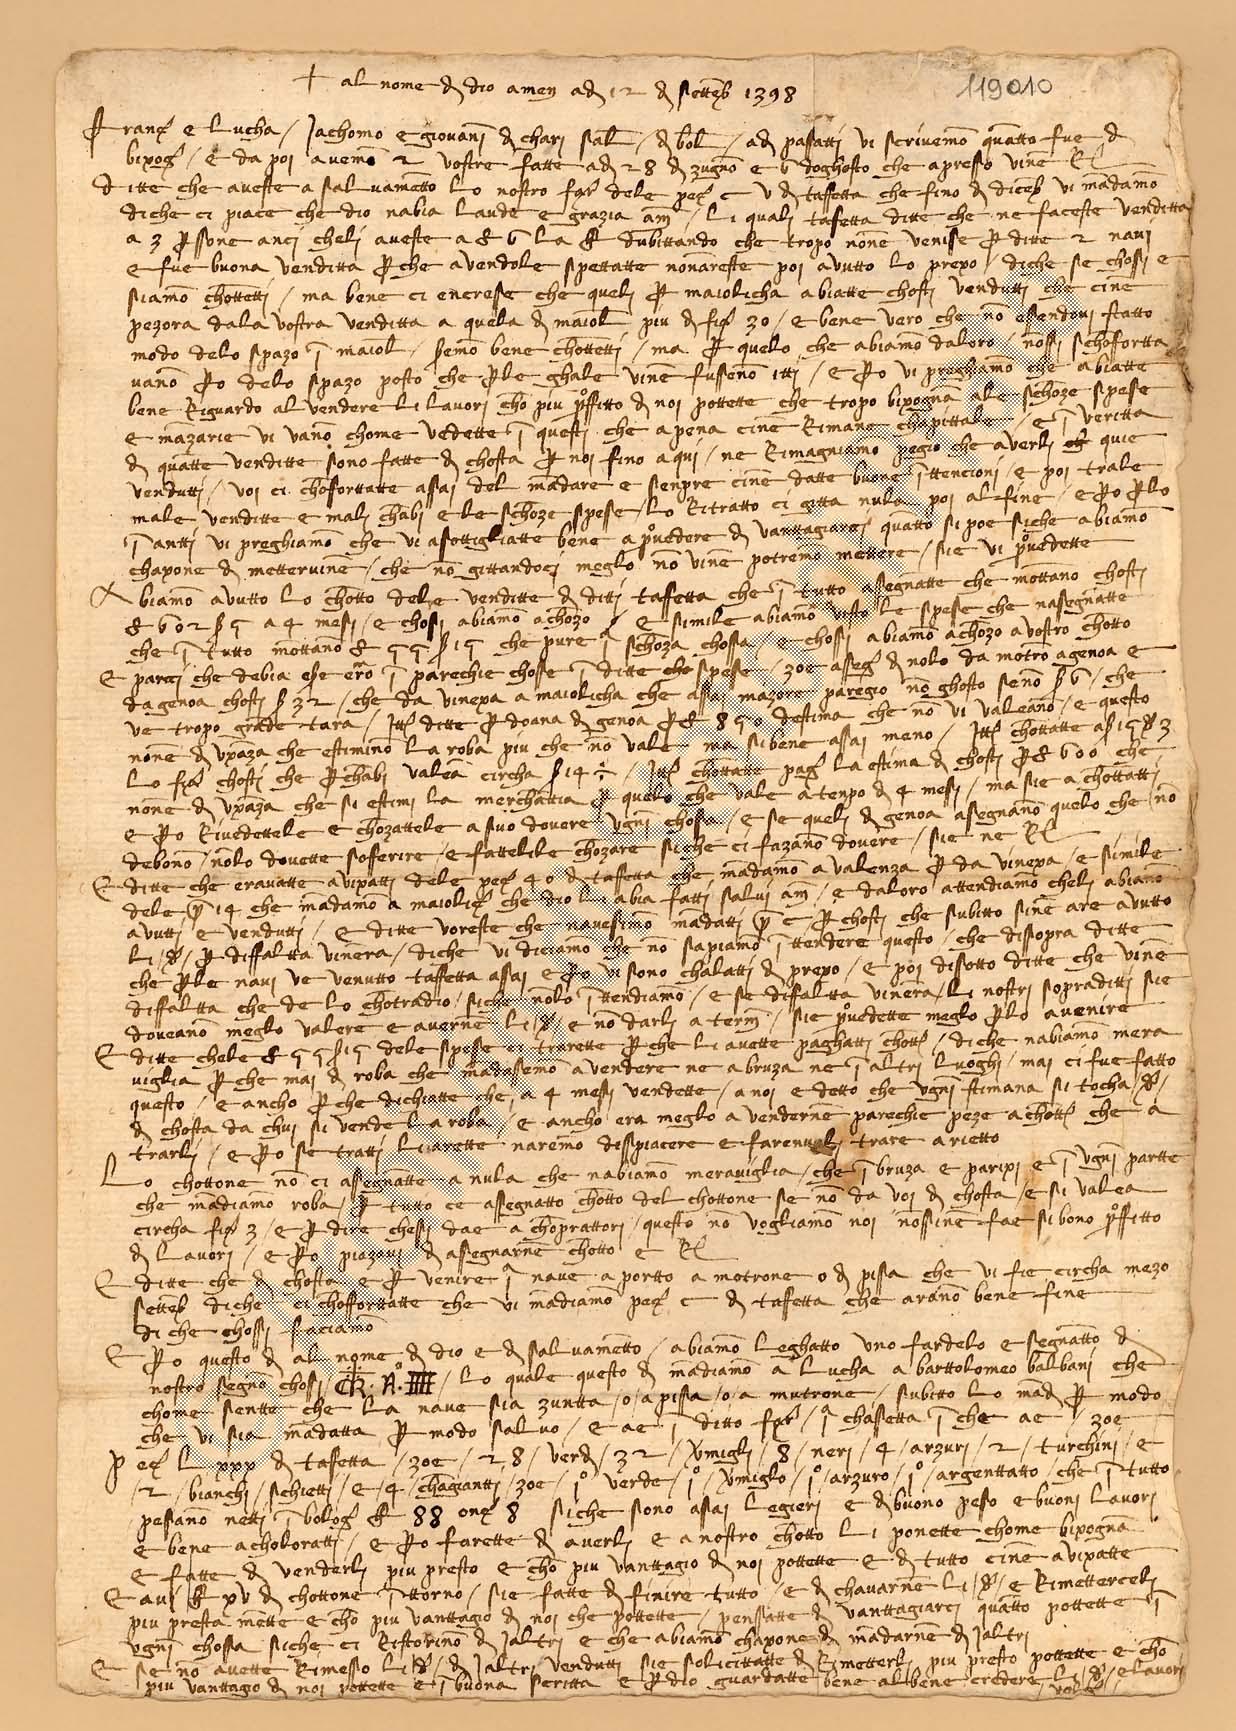 119010
+ al nome di dio amen adi 12 di settēb 1398
Franc e Lucha / Jachomo e giovanj di charj sal / di bol / adi pasatti vi scrivemo quātto fue d
bixog / e da poi avemō 2 vostre fatte adi 28 di zugnō e 6 doghosto che apresso vinē Rl
ditte che aveste a salvamētto lo nostro far dele pec C V di taffetta che fino di dicēb vi mādamō
diche ci piace che dio nabia laude e grazia am / li qualj tafetta ditte che ne faceste venditta
a 3 pssone ancj chelj aveste a £ 6 la £ dubittando che tropo nonē venise p ditte 2 navj
e fue buona venditta p che avendole spettatte nonāreste poi avutto lo prexo / diche se chossi e
siamō chōttettj / ma bene ci encresse che quelj p maiolicha abiatte chostj vendutti che cinē
pezora dala vostra venditta a quela di maiol piu di fio 30 / e bene vero che nō essendovj statto
modo delo spazo ī maiol / semō bene chōttettj / ma p quelo che abiamō daloro / nossj schōfortta
vanō po delo spazo posto che ple ghale vinē fussenō itti / e po vi preghiamō che abiatte
bene Riguardo al vendere li lavorj chō piu pffitto di noi pottette che tropo bixogna ale schoze spese
e māzarie vi vanō chome vedette ī questj che apena cinē Rimane chapittale / e ī veritta
di quatte venditte sono fatte di chosta p noi fino aqui / ne Rimagniamō pegio che averlj quie
vendutti / voi ci chōforttatte assai del mādare e senpre cinē datte buone īttencionj / e poi trale
male venditte e malj chābj e le schoze spesse / lo Ritratto ci gitta nulo poi al fine / e po plo
ī antti vi preghiamō che vi asottigliatte bene a pvedere di vanttagiarcj quātto si poe siche abiamō
chaxone di mettervinē / che nō gittandocj meglo nō vinē potremō mettere / sie vi pvedette
Abiamō avutto lo chōtto dele venditte di dittj tafetta che ī tutto assegnatte che mōttano chostj
£ 602 ß 5 a 4 mesj / e chosj abiamō achōzo / e simile abiamō visto le spese che nasegnatte
che ī tutto mōttanō £ 55 ß 15 che pure ī schōza chossa / e chossj abiamō achōzo a vostro chōtto
E parcj che debia ese erō ī parechie chosse ī ditte spese / zoe asseg di nolo da motrō agenoa e
da genoa chostj ß 32 / che da vinexa a maiolicha che assaj mazore paregio nō ghosto senō ß 6 / che
ve tropo grāde tara / Itt ditte p doana di genoa p £ 850 destima che nō vi valeanō / e questo
nonē di vxāza che estiminō la roba piu che nō vale ma sibene assai meno / Itt chōttatte ß 15 d 3
lo far chostj che p chābj valea circha ß 14 ½ / Itt chōttatte pag la estima di chostj p £ 600 che
nonē di vxāza che si estimj la merchāttia p quelo che vale atenpo di 4 mesj / ma sie a chōttāttj
e po Rivedettele e chōzattele a suo dovere vgnj chossa / e se quelj di genoa asegnanō quelo che nō
debonō / nōlo dovette sofferire / e fattelile chōzare siche ci fazanō dovere / sie ne Rl
E ditte che eravatte avixatti dele pec 40 di taffetta che mādamō a valenza p da vinexa / e simile
dele p 14 che mādamō a maiolic che dio li abia fatti salvj am / e daloro attendiamō chelj abianō
avutti e vendutti / e ditte voreste che navesimō mādatti p C p chostj che subitto sinē are avutto
li d / p diffaltta vinera / diche vi diciamō che nō sapiamō īttendere questo / che dissopra ditte
che ple navj ve venutto taffetta assai e po vi sono chalatti di prexo / e poi dissotto ditte che vinē
diffaltta che de lo chōtradio / siche nōlo īttendiamō / e se diffaltta vinera / li nostrj sopradittj sie
doveanō meglo valere e avernē li d / e nō darlj a term / sie pvedette meglo plo avenire
E ditte chele £ 55 ß 15 dele spese ci trarette p che li avette paghatti chōtt / diche nabiamō mera
viglia p che maj di roba che mādassemō a vendere ne abruza ne ī altrj luoghj / mai ci fue fatto
questo / e ancho p che dichiatte che a 4 mesj vendette / a noi e detto che vgnj stimana si tocha d /
di chosta da chuj si vende la roba / e ancho era meglo a vendernē parechie peze a chōtt che a
trarlj / e po se tratti livarette narēmō disspiacere e farenvelj trare a rietto
Lo chottone nō ci assegnatte a nula che nabiamō meraviglia / che ī bruza e parixj e ī vgnj partte
che mādiamō roba / p tutto ce assegnatto chōtto del chottone se nō da voj di chosta / e si valea
circha fio 3 / e p dire chessj dae a chōprattorj / questo nō vogliamō noi nossinē fae si bono pffitto
di lavorj / e po piazavj di assegnarnē chōtto e Rl
E ditte che di chosta e p venire ī nave a portto a motrone o di pissa che vi fie circha mezo
settēb diche ci chōfforttatte che vi mādiamō pec C di tafetta che aranō bene fine
di che chossj faciamō
E po questo di al nome di dio e di salvamētto / abiamō leghatto uno fardelo e segnatto di
nostro segno chosj / lo quale questo di mādiamō a lucha a barttolomeo balbanj che
chome sentte che la nave sia zuntta / o / a pissa / o / a mutrone / subitto lo mād p modo
che vi sia mādatta p modo salvo / e ae ī ditto far / ī chassetta ī che ae / zoe
pec L xxx di tafetta / zoe / 28 / verd / 32 / vmiglj / 8 / nerj / 4 / arzurj / 2 / turchinj / e
/ 2 / bianchj / schiettj / e / 4 / chāgianttj / zoe / 1º verde / 1º / vmiglo / 1º / arzuro / 1º / argenttatto / che ī tutto
pesanō nettj ī bolog £ 88 onc 8 siche sono assaj legierj e di buono peso e buonj lavorj
e bene acholorattj / e po farette di averlj e a nostro chōtto li ponette chome bixogna
e fatte di venderlj piu presto e chō piu vanttagio di noi pottette e di tutto cinē avixatte
E avj £ xv di chottone īttorno / sie fatte di finire tutto / e di chavarnē li / d / e Rimettercelj
piu presta mette e chō piu vanttagio di noi che pottette / penssatte di vanttagiarcj quātto pottette ī
vgnj chossa siche ci Ristorinō di Jaltrj e che abiamō chaxone di mādarnē di Jaltrj
E se nō avette Rimesso li d / di Jaltrj vendutti sie solicittatte di Rimetterlj piu presto pottette e chō
piu vanttagio di noi pottette e ī buona scritta e p dio guardatte bene albene credere li d / e lavorj